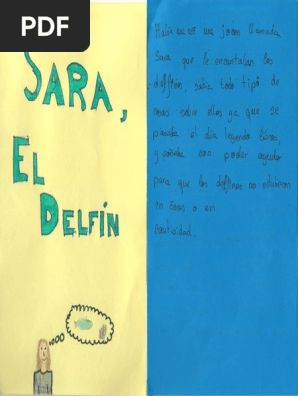 PDF
SARA,
EL
DELFÍN
Había una vez una joven llamada
Sara que le encantaban los
delfines, sabía todo tipo de
cosas sobre ellos ya que se
pasaba el día leyendo libros
y soñaba con poder ayudar
para que los delfines no estuvieran
en zoos o en
cautividad.